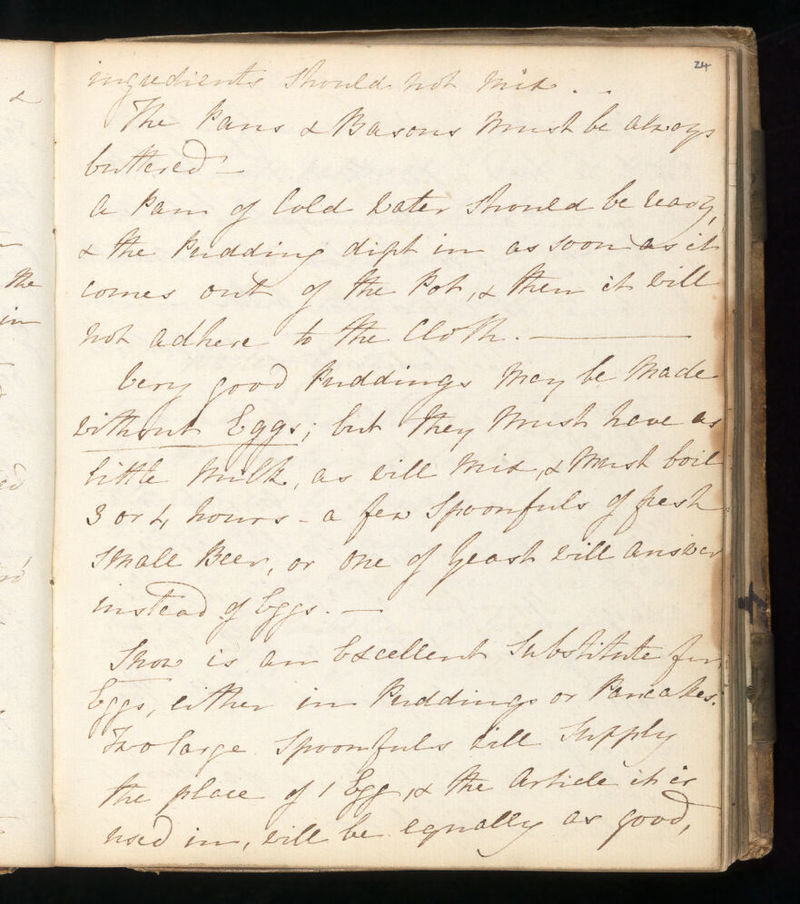 24
ingredients should not mix. .
The Pans & Basons must be always
buttered -
A Pan of Cold Water should be ready,
& the Pudding dipt in as soon as it
comes out of the Pot, & then it will
not adhere to the Cloth. —
Very good Puddings may be made
without Eggs; but they must have as
little Milk, as will Mix, & must boil
3 or 4 hours - a few Spoonfuls of fresh
Small Beer, or one of Yeast will answer
instead of Eggs. —
Snow is an Excellent Substitute for
Eggs, either in Puddings or Pancakes.
Two large Spoonfuls will Supply
the place of 1 Egg, & the Article it is
used in, will be equally as good,
&
the
in